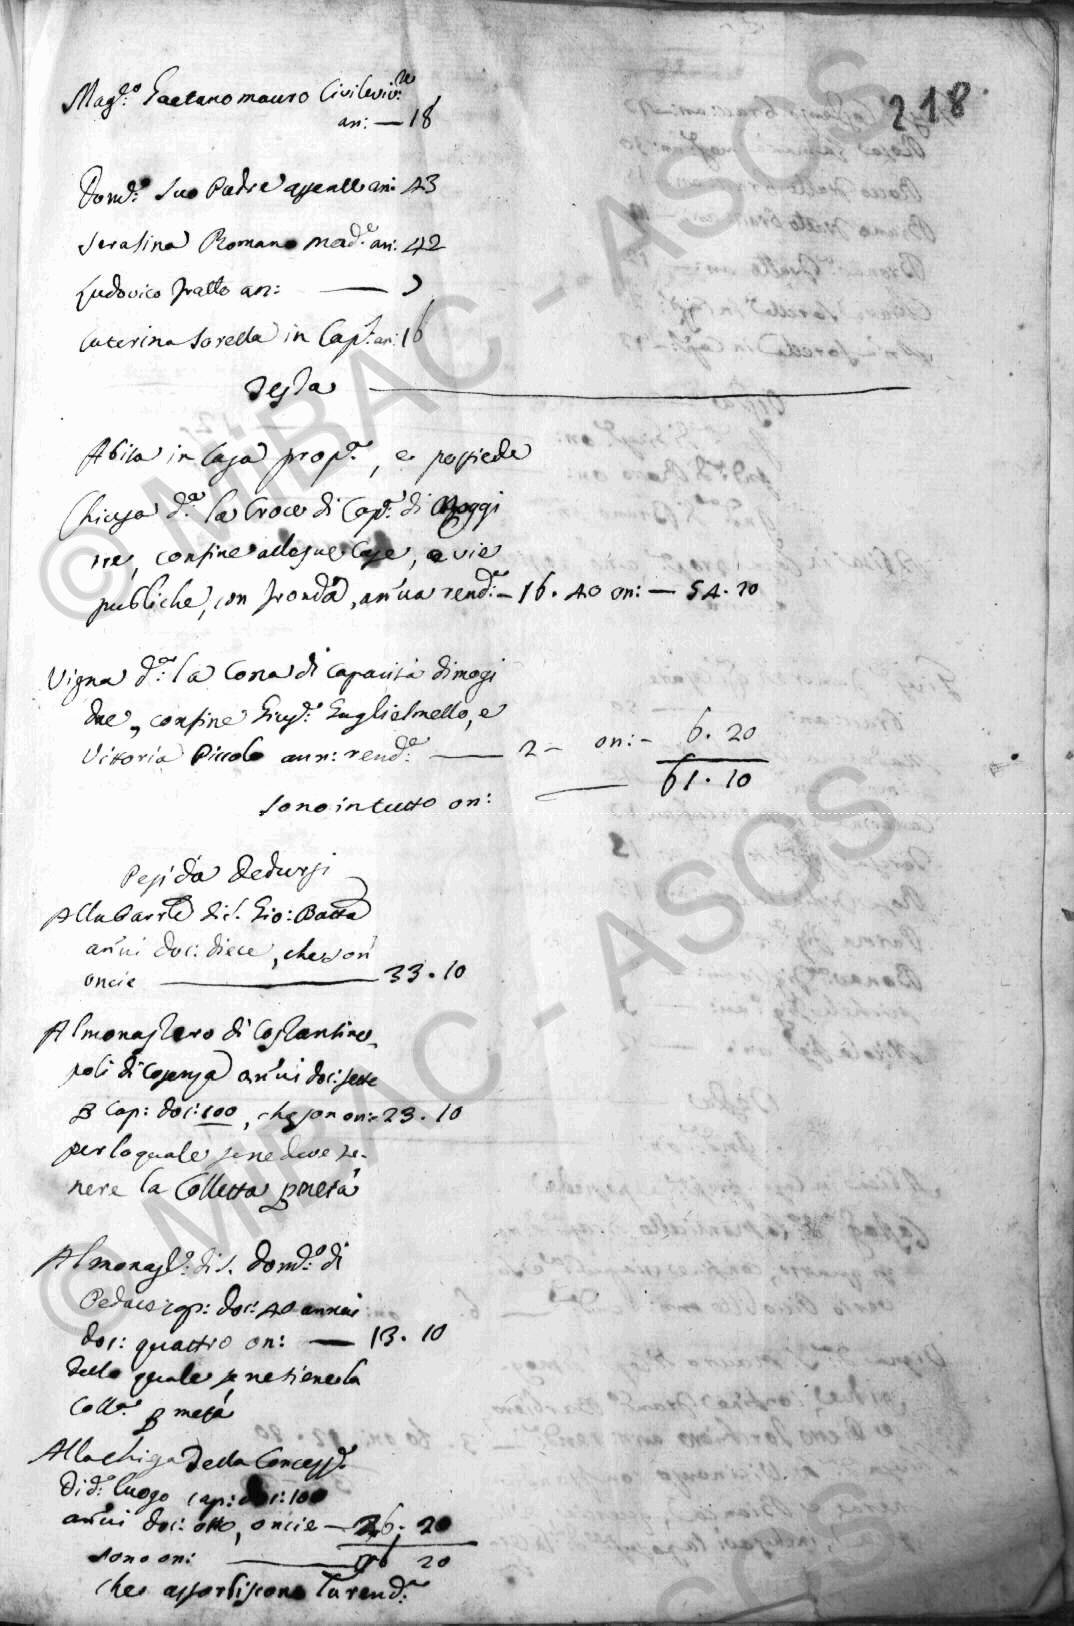 218
Mag.co Gaetano mauro Civile viv.te
an: — 18
Dom.co Suo Padre assente an: 43
Serafina Romano mad.e an: 42
Ludovico fratto an: —
Caterina Sorella in Cap.li an: 16
Testa
Abita in Casa prop.a, e possiede
Chiusa d.a la Croce di Cap.tà di Moggi
tre, confine alle sue Case, e vie
publiche, con fronda, an'ua rend.a - 16. 40 on: — 54. 20
Vigna d.a la Cona di capacità di mogi
due, confine Gius.e Guglielmello, e
Vittoria Piccolo ann: rend.a — 2 - on: - 6. 20
Sono in tutto on: — 61. 10
Pesi da dedursi
Alla Parr.le di S. Gio: Batta
an'ui doc: diece, che son
oncie — 33. 10
Al monastero di Costantino
poli di Cosenza an'ui doc: sette
p Cap: doc: 100, che son on: 23. 10
per lo quale se ne deve te-
nere la Colletta p metà
Al monast.o di S. Dom.co di
Pedace cap: doc: 40 annui
doc: quattro on: — 13. 10
delle quale se ne tiene la
Coll.a p metà
Alla chiesa della Concezz.e
di d.o luogo cap: doc: 100
an'ui doc: otto, oncie — 26. 20
sono on: — 20
che assorbiscono la rend.a
© MiBAC - ASCS
© MiBAC - ASCS
ASCS